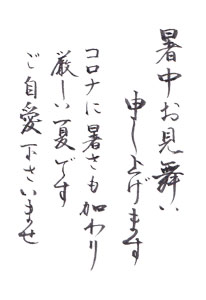 暑中お見舞い
申し上げます
コロナに暑さも加わり
厳しい夏です
ご自愛下さいませ